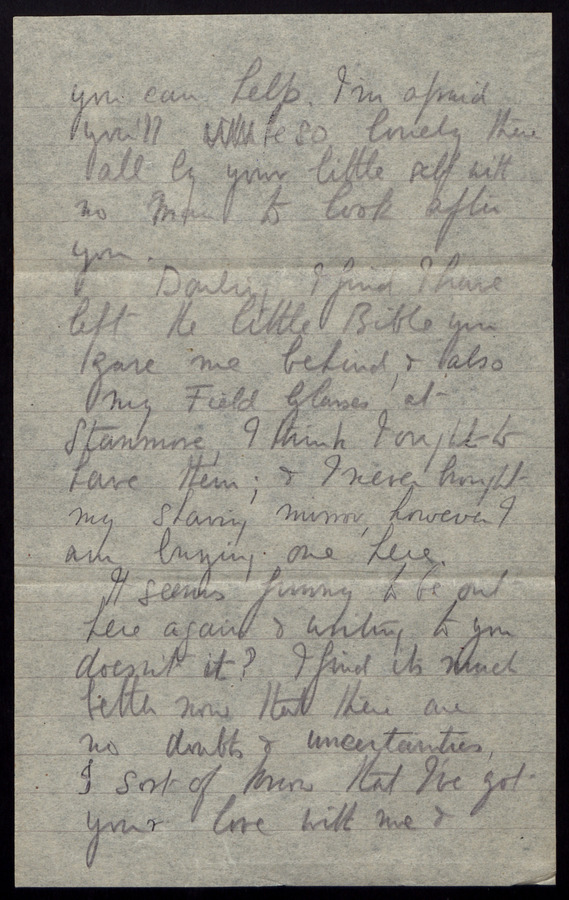 you can help. I'm afraid
you'll be so lonely there
all by your little self with
no man to look after
you.
Darling, I find I have
left the little Bible you
gave me behind, & also
my Field Glasses at
Stanmore, I think I ought to
have them; & I never brought
my shaving mirror, however I
am buying one here.
It seems funny to be out
here again & writing to you
doesn't it? I find its much
better now that there are
no doubts & uncertainties,
I sort of know that I've got
your love with me &